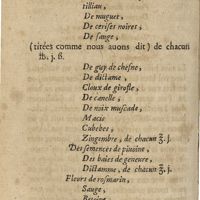 tilliau,
De muguet,
De cerises noires,
De sauge,
(titées comme nous auons dit) de chacun
℔. j. ß.
De guy de chesne,
De dictame,
Cloux de girofle,
De canelle,
De noix muscade,
Macis
Cubebes,
Zingembre, de chacun ℥. j.
Des semences de piuoine,
Des baies de geneure,
Dictamme, de chacun ℥. j.
Fleurs de rosmarin,
Sauge,